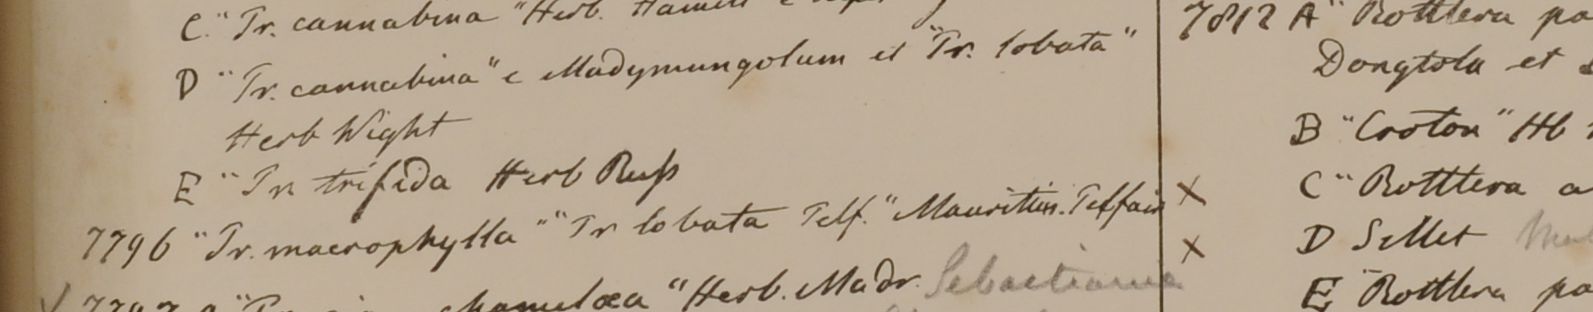 C. "Tr. cannabina "Herb.
D "Tr. cannabina" e Madymungolum et "Tr. lobata"
Herb Wight
E "Tr. trifida Herb Russ
7796 "Tr. macrophylla" "Tr lobata Telf." Mauritius. Telfair
chamelæa "Herb. Madr. Sebastiania
7812 A "Rottlera pa
Dongtola et
B "Croton" Hb
C "Rottlera a
D Sillet
E "Rottlera pa